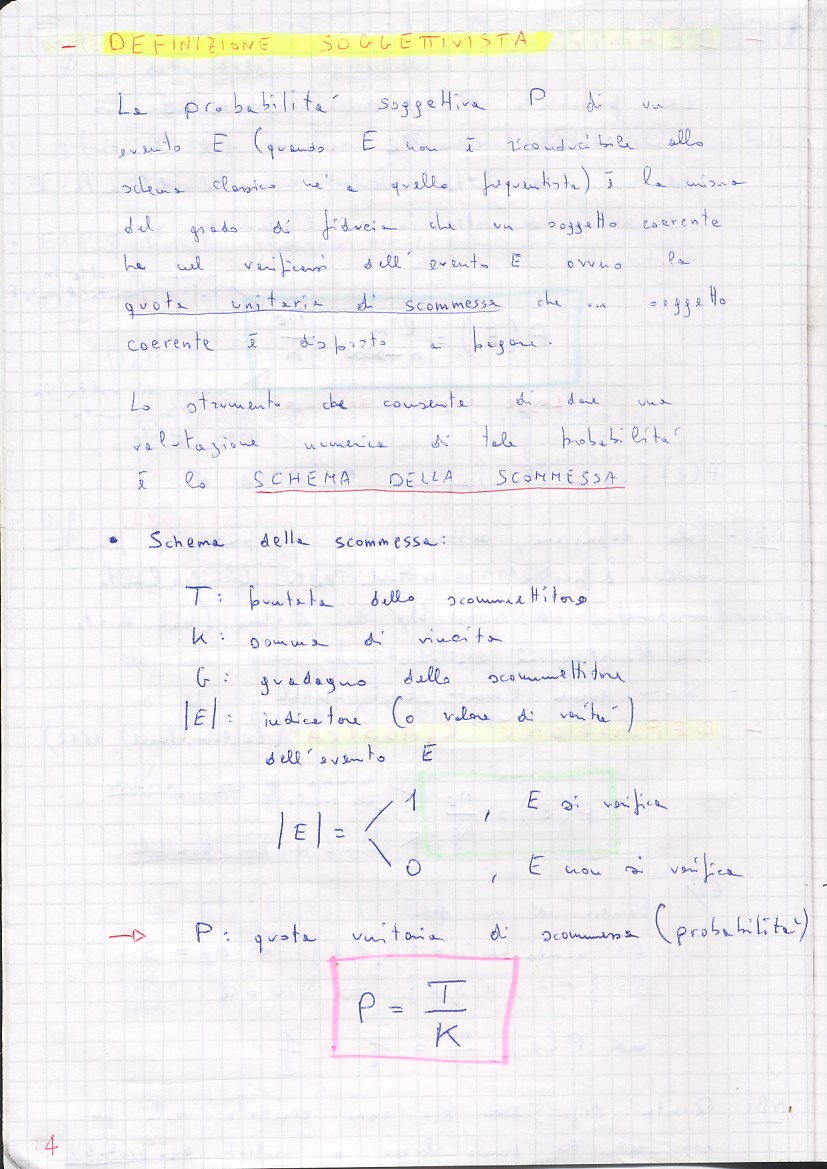 - DEFINIZIONE SOGGETTIVISTA
La probabilità soggettiva P di un
evento E (quando E non è riconducibile allo
schema classico né a quello frequentista) è la misura
del grado di fiducia che un soggetto coerente
ha nel verificarsi dell'evento E ovvero la
quota unitaria di scommessa che un soggetto
coerente è disposto a pagare.
Lo strumento che consente di dare una
valutazione numerica di tale probabilità
è lo SCHEMA DELLA SCOMMESSA
• Schema della scommessa:
T: puntata dello scommettitore
K: somma di vincita
G: guadagno dello scommettitore
|E|: indicatore (o valore di verità)
dell'evento E
|E| = 1, E si verifica
0, E non si verifica
→ P: quota unitaria di scommessa (probabilità)
P = T/K
4